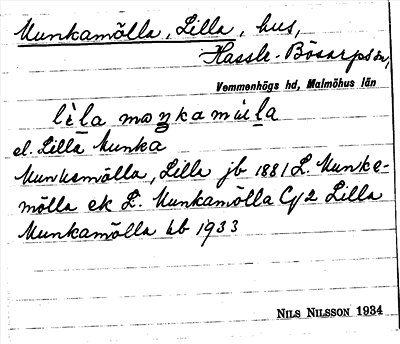 Munkamölla, Lilla, hus,
Hassle-Bösarps sn,
Vemmenhögs hd, Malmöhus län
lìla maŋkamúla
el. Lilla Munka
Munkamölla, Lilla jb 1881 L. Munke-
mölla ek L. Munkamölla Cy2 Lilla
Munkamölla kb 1933
NILS NILSSON 1934